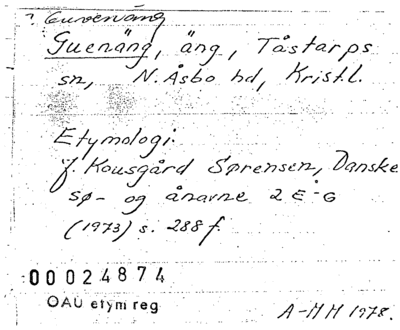 ? Guvenäng
Guenäng, äng, Tåstarps
sn, N. Åsbo hd, Kristl.
Etymologi:
J. Kousgård Sørensen, Danske
sø- og ånavne 2 E-G
(1973) s. 288 f.
00024874
OAU etym reg
A-MH 1978.